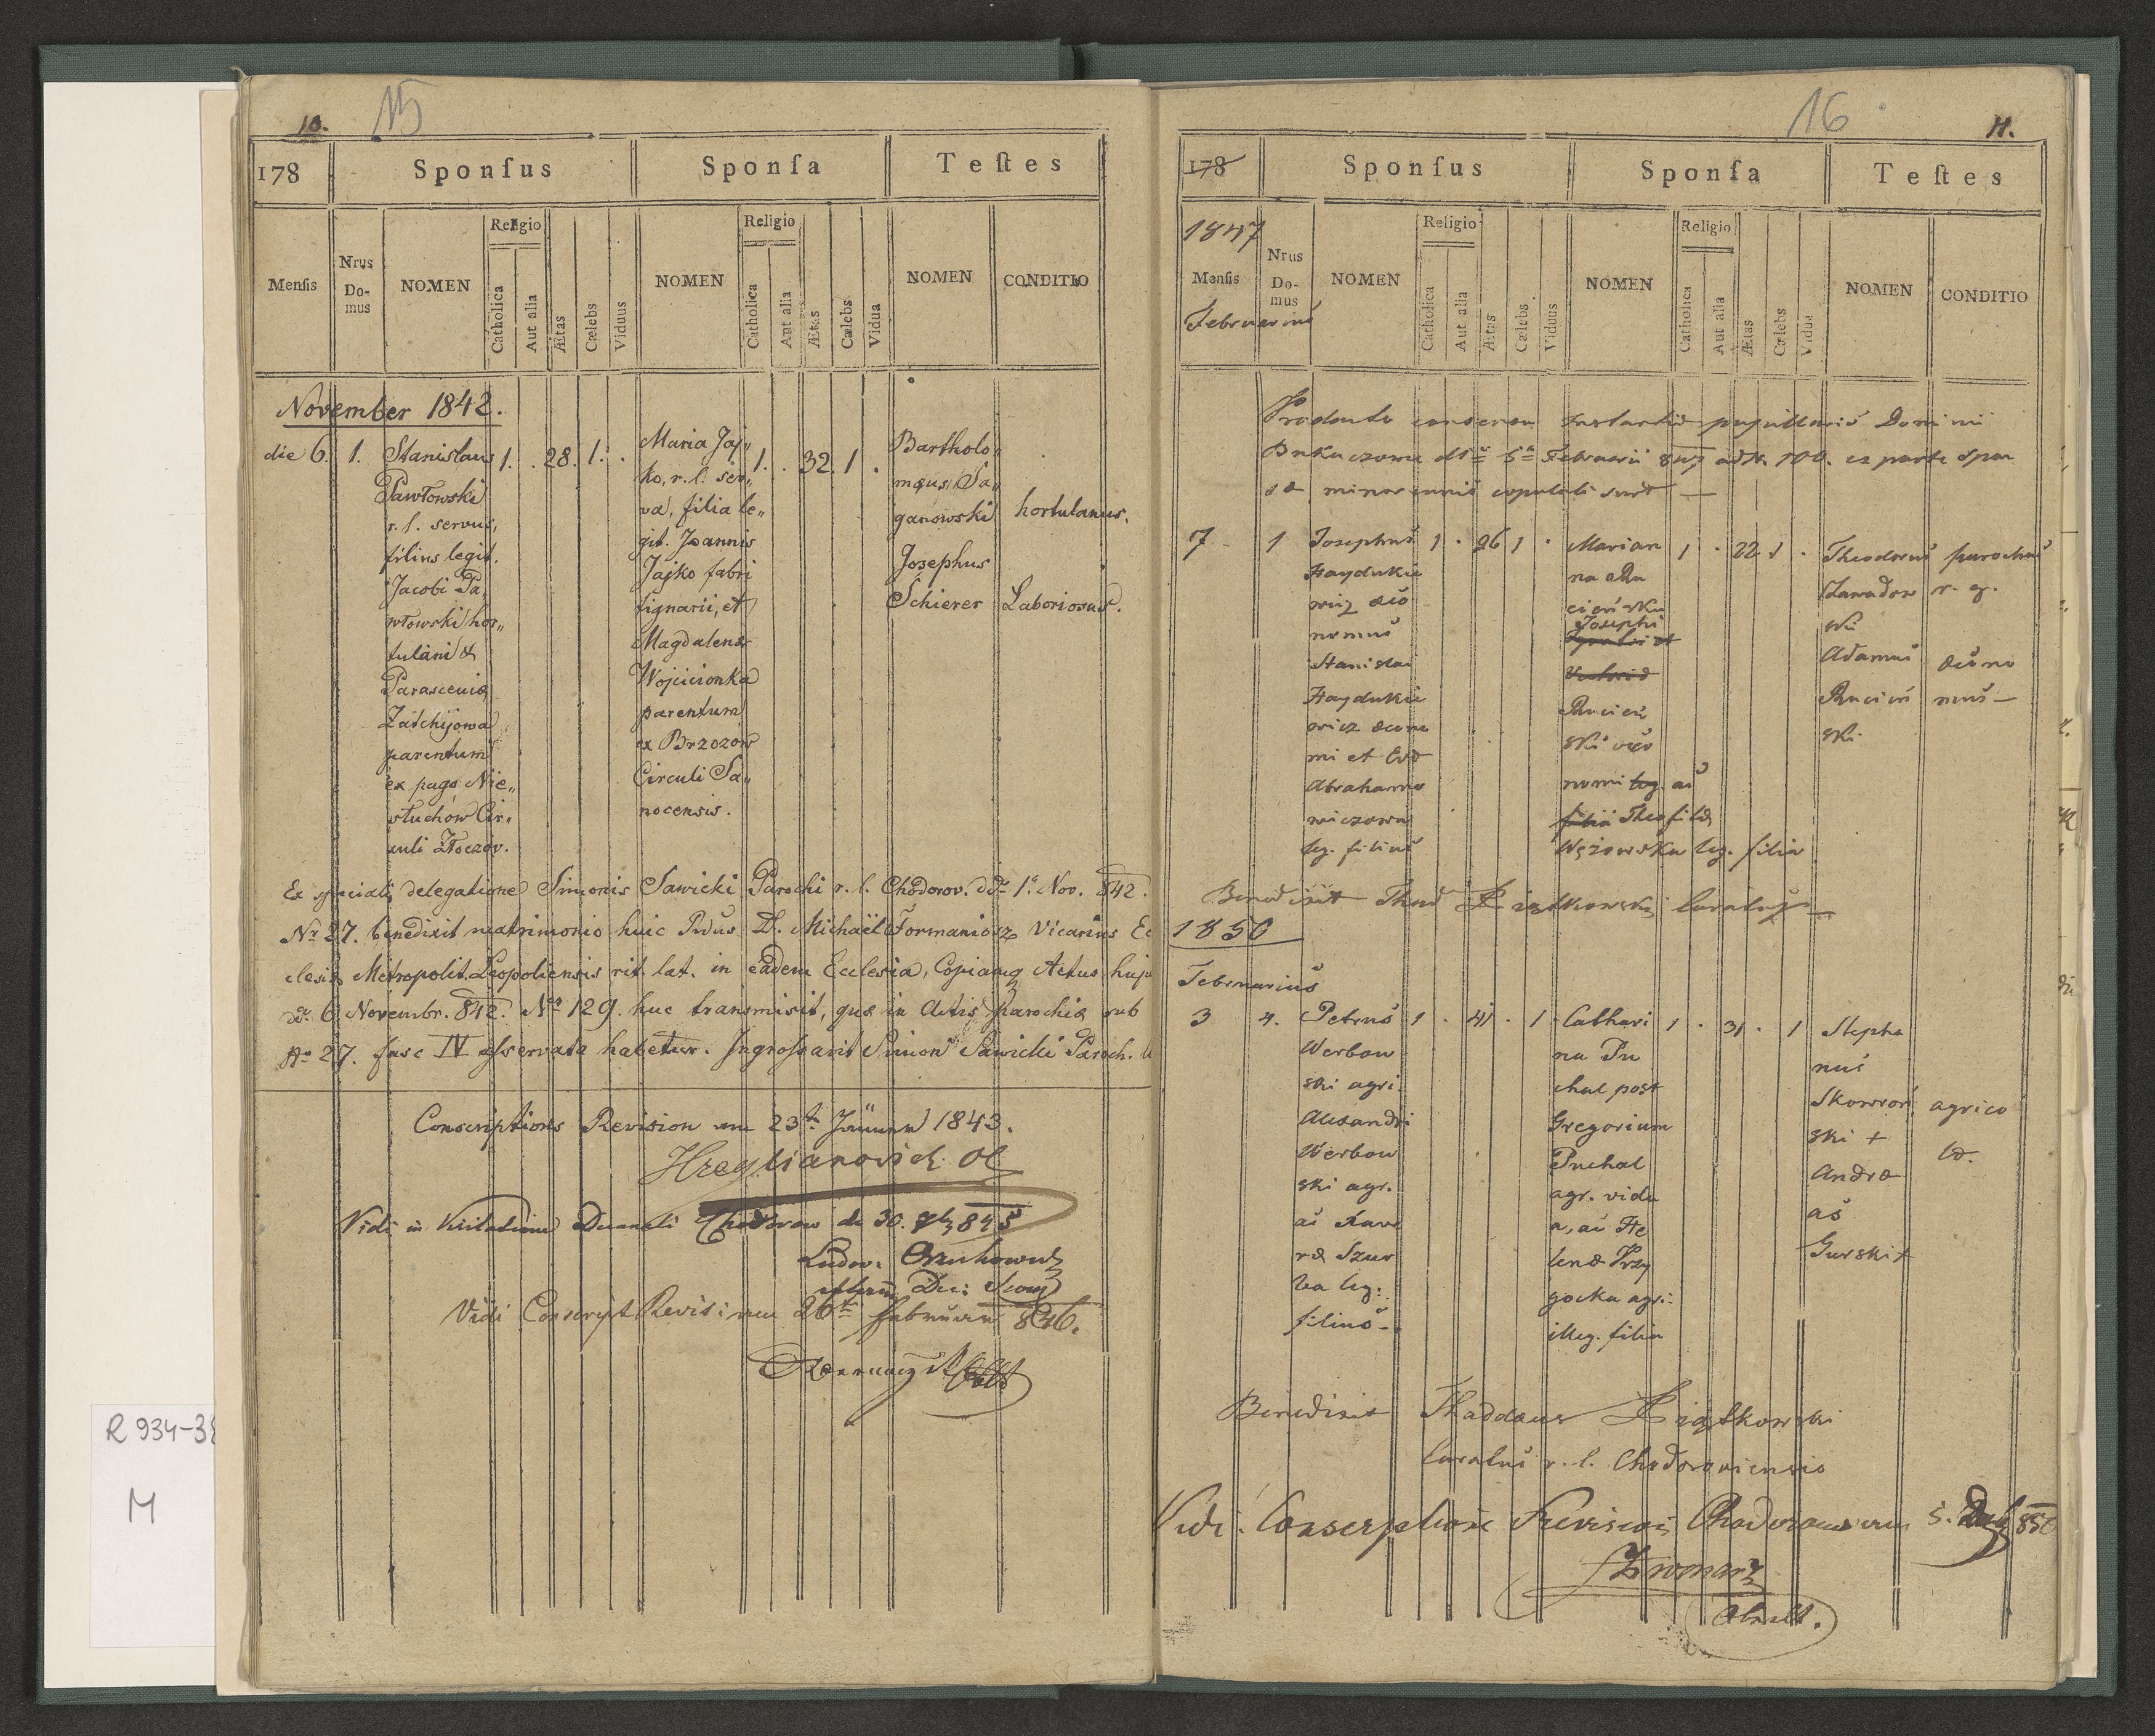 10.
15
178
Sponſus
Sponſa
Teſtes
Menſis
Nrus
Do-
mus
NOMEN
Religio
Catholica
Aut alia
Ætas
Cælebs
Viduus
NOMEN
Religio
Catholica
Aut alia
Ætas
Cælebs
Vidua
NOMEN
CONDITIO
November 1842.
die 6. 1.
Stanislaus
Pawłowski
r. l. servus,
filius legit.
Jacobi Pa„
włowski hor„
tulani &
Parascenia
Zatchijowa
parentum
ex pago Nie„
słuchów Cir„
culi Złoczov.
1. . 28. 1. .
Maria Jaj„
ko, r. l. ser„
va, filia le„
git. Joannis
Jajko fabri
lignarii, et
Magdalena
Wojcicionka
parentum
ex Brzozów
Circuli Sa„
nocensis.
1. . 32. 1 .
Bartholo„
mæus Sa„
ganowski hortulanus.
Josephus
Schierer Laboriosus.
Ex speciali delegatione Simonis Sawicki Parochi r. l. Chodorov. dd. 1. Nov. 842.
Nr. 27. benedixit matrimonio huic D. Michaël Formaniosz Vicarius Ec
clesiæ Metropolit. Leopoliensis rit. lat. in eadem Ecclesia, Copiamq Actus huju
dd. 6 Novembr. 842. No 129. huc transmisit, quæ in Actis Parochiæ sub
No 27. fasc IV asservata habetur. Ingrossavit Simon Sawicki Paroch.
Conscriptions Revision am 23t Jänner 1843.
Vidi in Visitatione Decanali Chodorow de 30. 845
Ludov.
Vidi Conscript Revis: am 26ten Februar 846.
16
11.
178
Sponſus
Sponſa
Teſtes
1847
Menſis
Februarius
Nrus
Do-
mus
NOMEN
Religio
Catholica
Aut alia
Ætas
Cælebs
Viduus
NOMEN
Religio
Catholica
Aut alia
Ætas
Cælebs
Vidua
NOMEN
CONDITIO
Bukaczowce 5a Februarii 847 ad N. 100. ex parte spon
sæ minorennis copulati sunt —
7 1
Josephus
Haydukie
wicz œco
nomus
Stanislai
Haydukie
wicz œcono
mi et Eva
Abrahamo
wiczowa
leg. filius
1 . 26 1 .
Marian
na Ru
cieńska
Josephi
Rucień
ski œco
nomi leg. ac
filia Theofila
Wężowska leg. filia
1 . 22 1 .
Theodorus parochus
Zawadow r. g.
ski
Adamus œcono
Rucień mus —
ski
Benedixit Thad Ziętkowski Curatus
1850
Februarius
3 4.
Petrus
Werbow
ski agri.
Alexandri
Werbow
ski agr.
ac Barba
ræ Szur
ba leg:
filius -
1 . 41 . 1
Cathari
na Pu
chal post
Gregorium
Puchal
agr. vidu
a, ac He
lenæ Przy
gocka agri:
illeg. filia
1 . 31 . 1
Stepha
nus
Skowroń agrico
ski + læ.
Andre
as
Gurski +
Benedixit Thaddæus Ziętkowski
Curatus r. l. Chodoroviensis
Vidi. Conscriptions Revision Chodorow am 5. 850
R 934-38
M